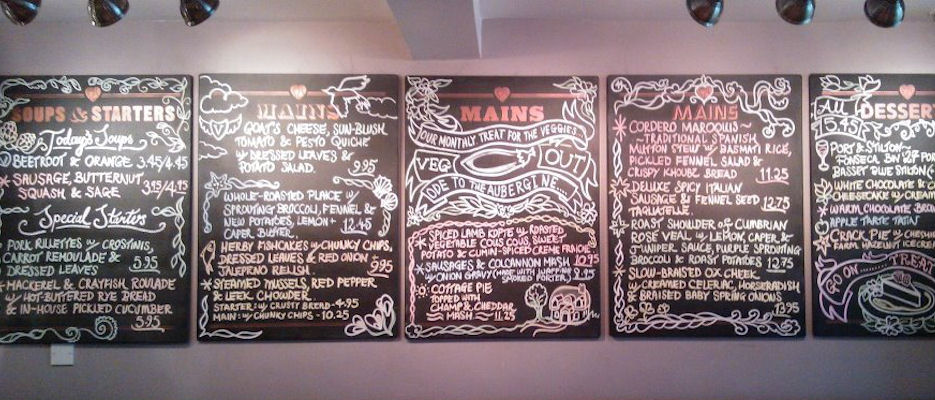 SOUPS & STARTERS
Today's Soups
BEETROOT & ORANGE 3.45/4.45
SAUSAGE, BUTTERNUT,
SQUASH & SAGE 3.15/4.15
Special Starters
PORK RILLETTES w/ CROSTINIS,
CARROT REMOULADE &
DRESSED LEAVES 5.95
MACKEREL & CRAYFISH ROULADE
w/ HOT-BUTTERED RYE BREAD
& IN-HOUSE PICKLED CUCUMBER
5.95
MAINS
GOAT'S CHEESE, SUN-BLUSH
TOMATO & PESTO QUICHE
w/ DRESSED LEAVES &
POTATO SALAD. 9.95
WHOLE-ROASTED PLAICE w/
SPROUTING BROCCOLI, FENNEL &
NEW POTATOES, LEMON +
CAPER BUTTER. 12.45
HERBY FISHCAKES w/ CHUNKY CHIPS,
DRESSED LEAVES & RED ONION +
JALEPENO RELISH. 9.95
STEAMED MUSSELS, RED PEPPER
& LEEK CHOWDER.
STARTER w/ CRUSTY BREAD - 4.95
MAIN: w/ CHUNKY CHIPS - 10.25
MAINS
YOUR MONTHLY TREAT FOR THE VEGGIES...
VEG OUT
ODE TO THE AUBERGINE....
SPICED LAMB KOFTE w/ ROASTED
VEGETABLE COUS COUS, SWEET
POTATO & CUMIN-SPICED CREME FRAICHE
10.95
SAUSAGES & COLCANNON MASH
w/ ONION GRAVY (MADE WITH WAPPING
SMOKED PORTER) 8.95
COTTAGE PIE
TOPPED WITH
CHAMP & CHEDDAR
MASH 11.25
MAINS
CORDERO MAROQUIS~
~TRADITIONAL SPANISH
MUTTON STEW w/ BASMATI RICE,
PICKLED FENNEL SALAD &
CRISPY KHOUBZ BREAD 11.25
DELUXE SPICY ITALIAN
SAUSAGE & FENNEL SEED 12.75
TAGLIATELLE.
ROAST SHOULDER OF CUMBRIAN
ROSE VEAL w/ LEMON, CAPER &
JUNIPER SAUCE, PURPLE SPROUTING
BROCCOLI & ROAST POTATOES 12.75
SLOW-BRAISED OX CHEEK
w/ CREAMED CELERIAC, HORSERADISH
& BRAISED BABY SPRING ONIONS
13.75
DESSERT
ALL 5.45
PORT & STILTON~
FONSECA BIN 27 PORT
BASSET BLUE STILTON
WHITE CHOCOLATE &
CHEESECAKE w/ CREAM
WARM CHOCOLATE BROWN
APPLE TARTE TATIN
FARM HAZELNUT ICE CREA
GO ON.... TREAT